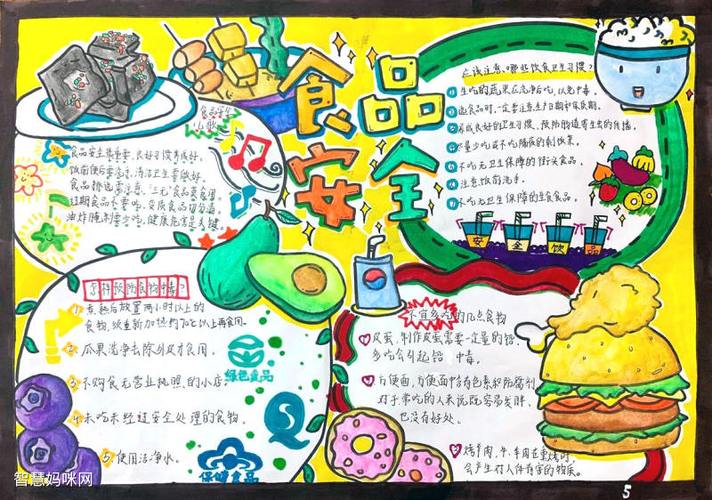 食品安全
食品安全儿歌
食品安全很重要,良好习惯养成好。
饭前便后要洗手,清洁卫生要做好。
食品挑选需注意,“三无”食品莫食用。
过期食品不要吃,变质食品切勿沾。
油炸腌制要少吃,健康危害是关键。
应该注意哪些饮食卫生习惯?
1 生吃的蔬果应洗净后吃,以免中毒。
选食品时,一定要注意生产日期和保质期。
养成良好的卫生习惯,预防肠道寄生虫的传播。
尽量少吃或不吃隔夜的剩饭菜。
不吃无卫生保障的街头食品。
注意饭前洗手。
不吃无卫生保障的生食食品。
安全饮品
怎样预防食物中毒?
1 煮熟后放置两小时以上的
食物,须重新加热约70℃以上再食用。
2 瓜果洗净去除外皮才食用。
3 不购食无营业执照的小店。
4 未吃未经过安全处理的食物。
5 使用洁净水。
绿色食品
Q
保健食品
不宜多吃的几点食物
皮蛋,制作皮蛋需要一定量的铅,
多吃会引起铅中毒。
方便面,方便面中含有色素和防腐剂
对于常吃的人来说既容易发胖,
也没有好处。
烤羊肉,牛、羊肉在熏烤时,
会产生对人体有害的物质。
智慧妈咪网
5